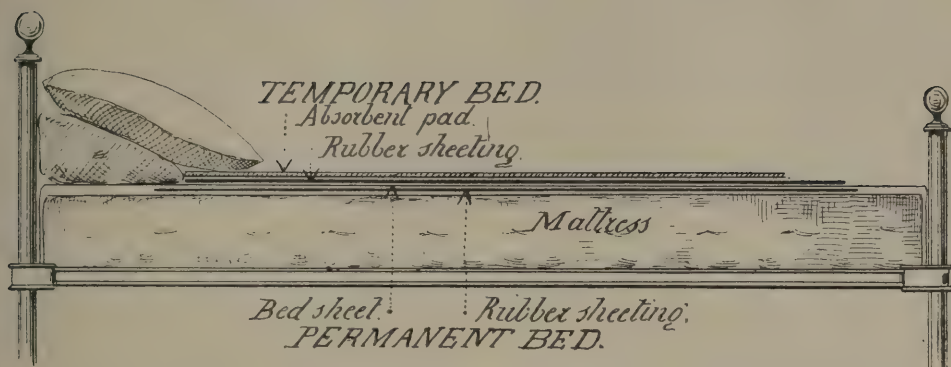 TEMPORARY BED.
Absorbent pad.
Rubber sheeting.
Mattress
Bed sheet. Rubber sheeting.
PERMANENT BED.